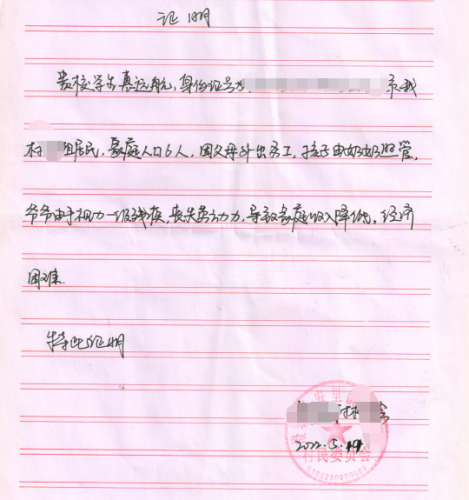 证明
贵校学生袁远航,身份证号为 系我
村 组居民,家庭人口6人,因父母外出务工,孩子由奶奶照管,
爷爷由于视力一级残疾,丧失劳动力,导致家庭收入降低,经济
困难.
特此证明
村 委
2022.5.19
村民委员会